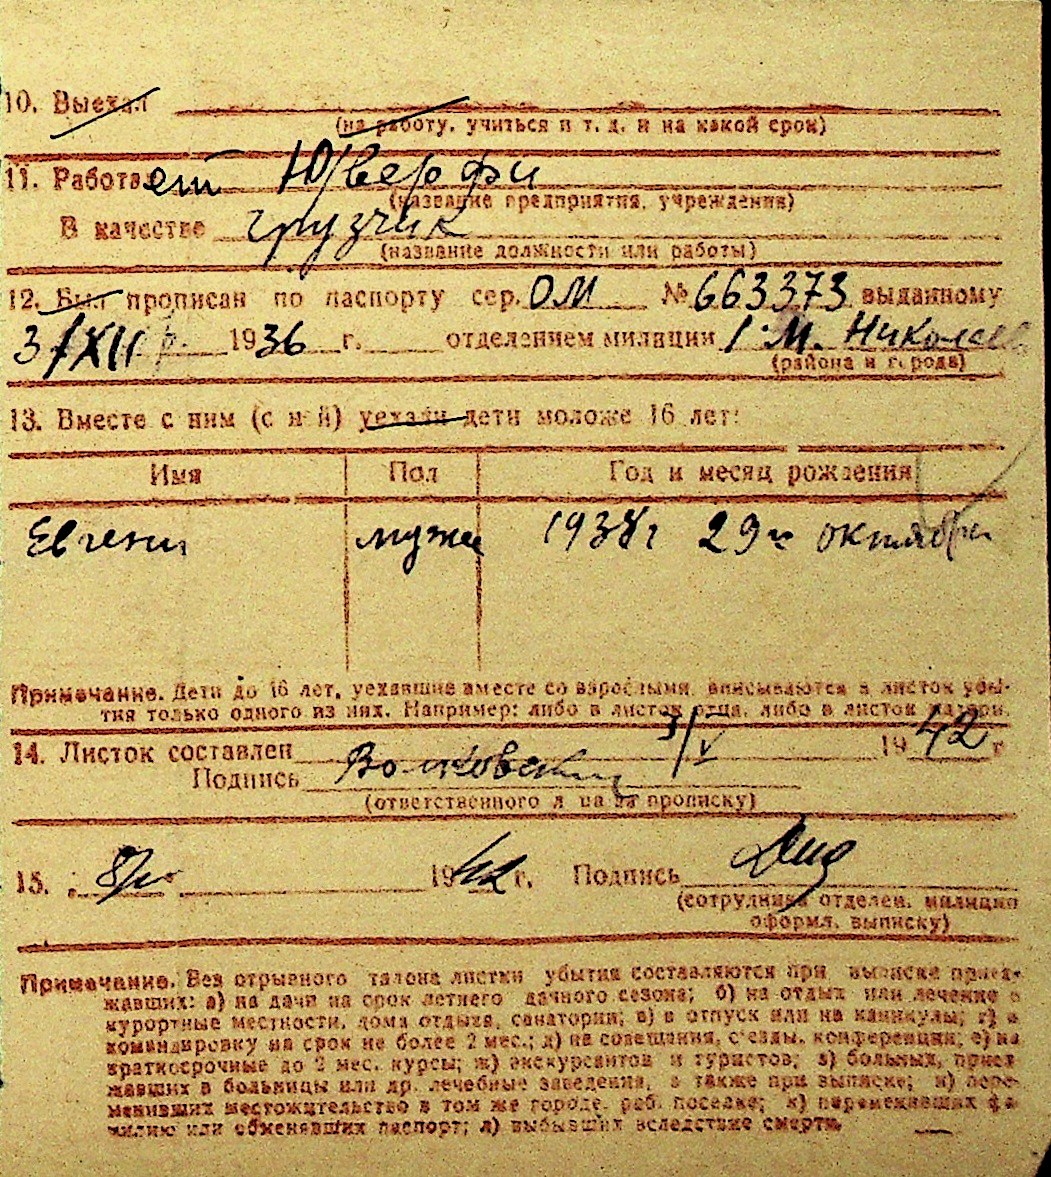 10. Выехал
(на работу, учиться и т. д. и на какой срок)
11. Работает Ю/верфи
(название предприятия, учреждения)
В качестве грузчик
(название должности или работы)
12. Был прописан по паспорту сер. ОМ № 663373 выданному
3/XII 1936 г. отделением милиции г. Николаев
(района и города)
13. Вместе с ним (с ней) уехали дети моложе 16 лет:
Имя Пол Год и месяц рождения
Евгени муже 1938 г 29го октября
Примечание. Дети до 16 лет, уехавшие вместе со взрослыми, вписываются в листок убы-
тия только одного из них. Например: либо в листок отца, либо в листок матери.
14. Листок составлен 3/V 1942 г
Подпись
(ответственного л ца за прописку)
15. 8/ 1942 г. Подпись
(сотрудника отделен. милиции
оформл. выписку)
Примечание. Без отрывного талона листки убытия составляются при выписке приез-
жавших: а) на дачи на срок летнего дачного сезона; б) на отдых или лечение в
курортные местности, дома отдыха, санатории; в) в отпуск или на каникулы; г) в
командировку на срок не более 2 мес.; д) на совещания, съезды, конференции; е) на
краткосрочные до 2 мес. курсы; ж) экскурсантов и туристов; з) больных, приез
жавших в больницы или др. лечебные заведения, а также при выписке; и) пере-
менивших местожительство в том же городе, раб. поселке; к) переменивших фа-
милию или обменявших паспорт; л) выбывших вследствие смерти.